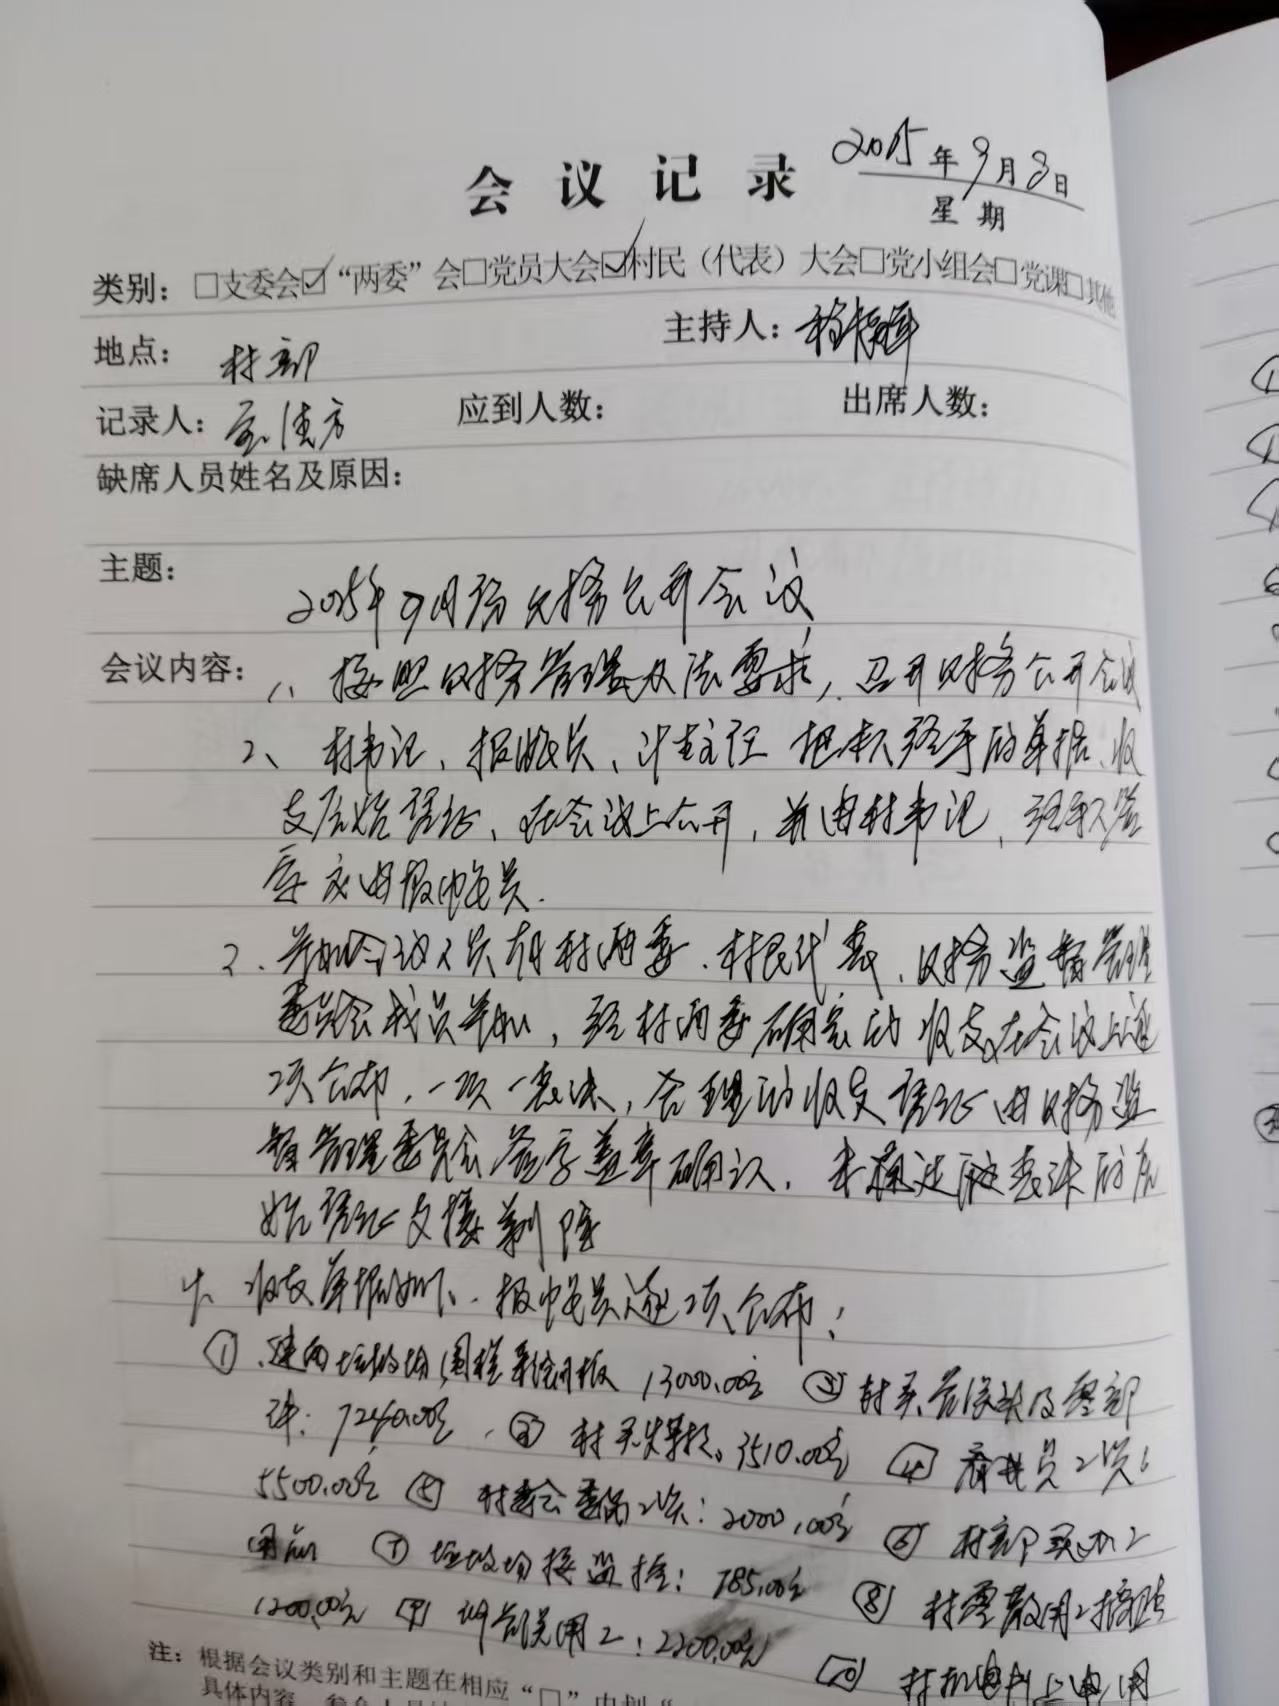 会议记录 2025年9月8日
星期
类别：□支委会☑“两委”会□党员大会☑村民（代表）大会□党小组会□党课□其他
地点： 村部 主持人：
记录人： 应到人数： 出席人数：
缺席人员姓名及原因：
主题：
2025年9月份财务公开会议
会议内容： 1、按照财务管理办法要求，召开财务公开会议
2、村书记、报账员、计生主任 把本人经手的单据、收
支原始凭证，在会议上公开，并由村书记，经手人签
字交由报账员.
3、参加会议人员有村两委、村民代表、财务监督管理
委员会成员参加，经村两委确定的收支在会议上逐
项公布，一项一表决，合理的收支凭证由财务监
督管理委员会签字盖章确认，未通过表决的原
始凭证直接剔除
4、收支单据如下、报账员逐项公布：
① 建两垃圾场围栏 13000.00元 ② 村买 及零部
件：7240.00元、③ 村 3510.00元 ④ 员工资：
5500.00元 ⑤ 村委会 工资：2000.00元 ⑥ 村部买办公
用品 ⑦ 垃圾场接监控：785.00元 ⑧ 村零散用工
1200.00元 ⑨ 用工：2200.00元
⑩ 村 用
注：根据会议类别和主题在相应“□”中划“
具体内容、参会人员